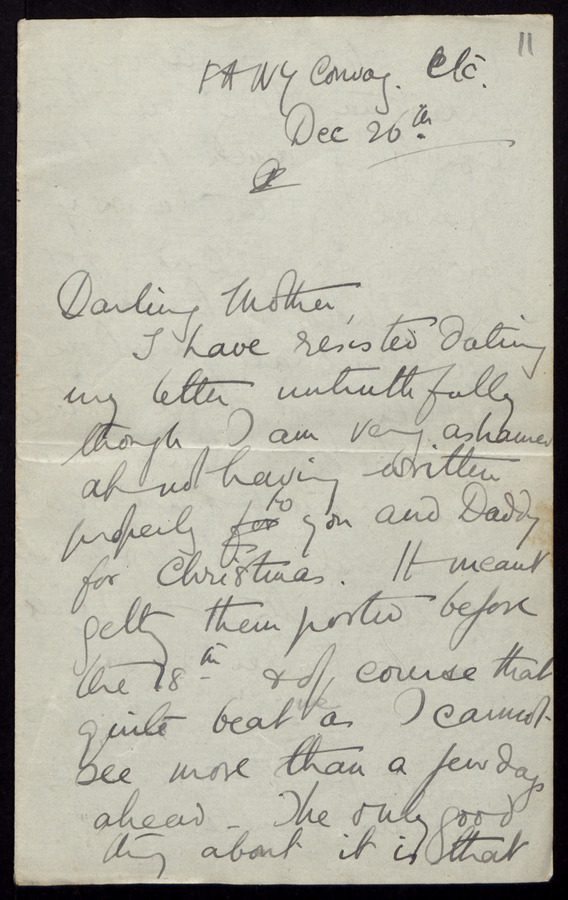 11
FANY Convoy. Etc.
Dec 26th
Darling Mother,
I have resisted dating
my letter untruthfully
though I am very ashamed
at not having written
properly for to you and Daddy
for Christmas. It meant
gettg them posted before
the 18th & of course that
quite beat me as I cannot
see more than a few days
ahead - The only good
thing about it is that